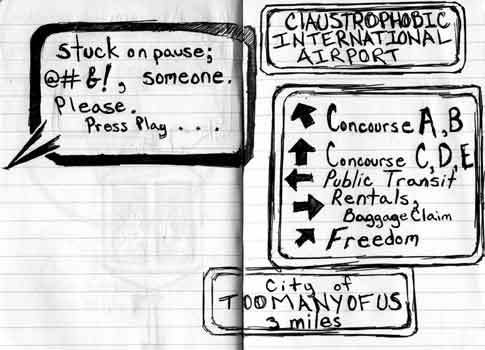 Stuck on pause;
@#&!, someone.
Please.
Press Play . . .
ClAUSTROPHOBIC
INTERNATIONAL
AIRPORT
Concourse A, B
Concourse C, D, E
Public Transit
Rentals,
Baggage Claim
Freedom
City of
TOOMANYOFUS
3 miles